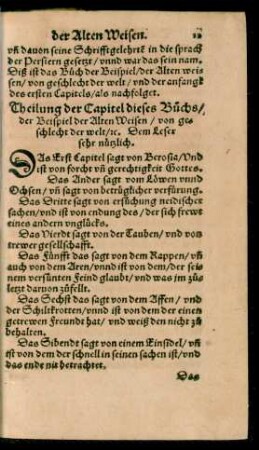 der Alten Weisen.
vñ dauon seine Schrifftgelehrtẽ in die sprach
der Persiern gesetzt / vnnd war das sein nam.
Diß ist das Bůch der Beispiel / der Alten weis
sen / von geschlecht der welt / vnd der anfangk
des ersten Capitels / als nachfolget.
Theilung der Capitel dieses Bůchs /
der Beispiel der Alten Weisen / von ges
schlecht der welt / ꝛc. Dem Leser
sehr nützlich.
DAs Erst Capitel sagt von Berosia / Vnd
ist von forcht vñ gerechtigkeit Gottes.
Das Ander sagt vom Löwen vnnd
Ochsen / vñ sagt von betrüglicher verfürung.
Das Dritte sagt von ersůchung neidischer
sachen / vnd ist von endung des / der sich frewt
eines andern vnglücks.
Das Vierdt sagt von der Tauben / vnd von
trewer gesellschafft.
Das Fünfft das sagt von dem Rappen / vñ
auch von dem Aren / vnnd ist von dem / der seis
nem versünten Feind glaubt / vnd was im zůs
letzt daruon zůfellt.
Das Sechst das sagt von dem Affen / vnd
der Schiltkrotten / vnnd ist von dem der einen
getrewen Freundt hat / vnd weiß den nicht zů
behalten.
Das Sibendt sagt von einem Einsidel / vñ
ist von dem der schnell in seinen sachen ist / vnd
das ende nit betrachtet.
Das